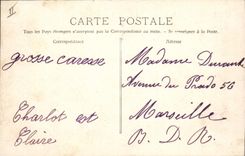 II
CARTE POSTALE
Tous les Pays étrangers n'acceptent pas la Correspondance au recto. — Se renseigner à la Poste.
Correspondance
Adresse
grosse caresse
Charlot et
Claire
Madame
Avenue du Prado 56
Marseille
B. D. R.